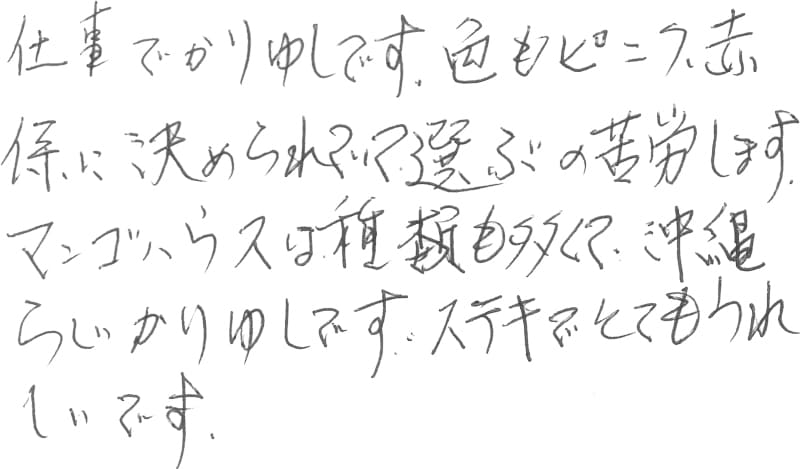 仕事でかりゆしです。色もピンク、赤
係に決められていて選ぶの苦労します。
マンゴハウスは種類も多くて、沖縄
らしいかりゆしです。ステキでとてもうれ
しいです。